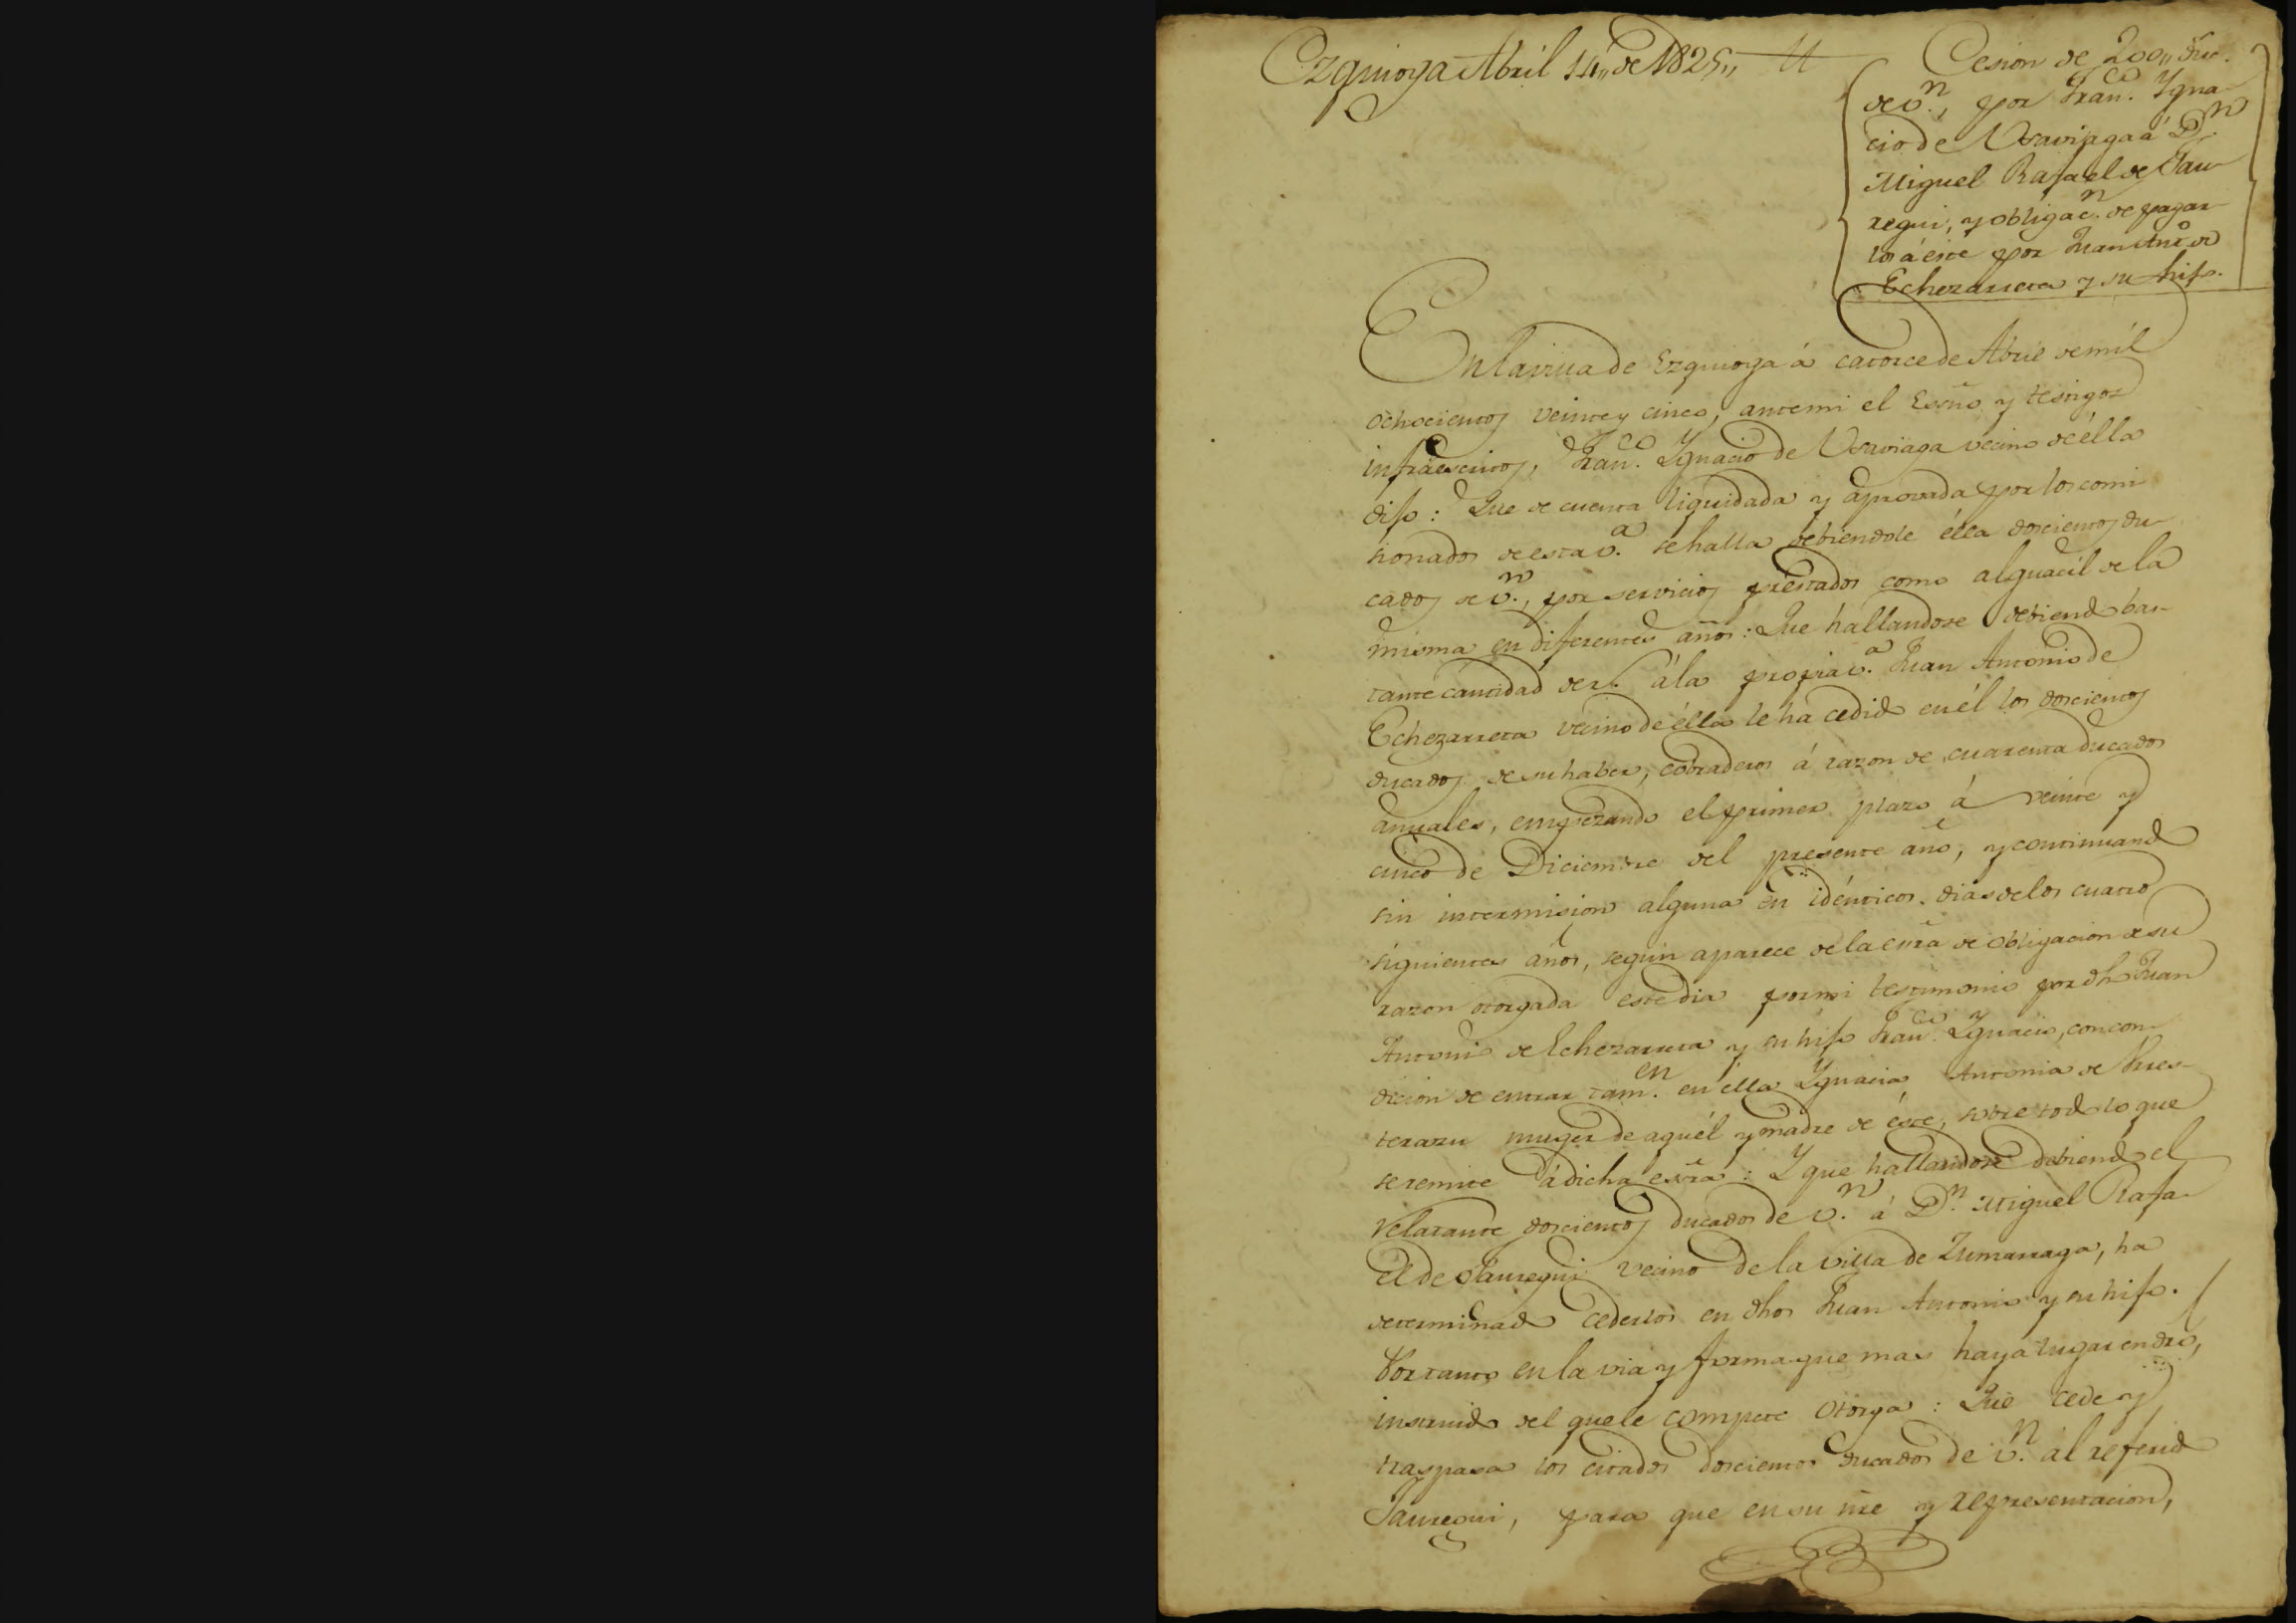 Ezquioga Abril 14,, de 1825,,
Cesion de 200,, duc.
de v.n, por Fran.co Ygna-
cio de Usaviaga á D.n
Miguel Rafael de Jau-
regui, y obligac.n de pagar-
los á éste por Juan Ant.o de
Echezarreta y su hijo.
En la villa de Ezquioga á catorce de Abril de mil
ochocientos veinte y cinco, ante mi el Essño y testigos
infraescritos, Fran.co Ygnacio de Usaviaga vecino de élla
dijo: Que de cuenta liquidada y aprovada por los comi
sionados de esta v.a se halla debiendole élla doscientos du-
cados de v.n, por servicios prestados como alguacil de la
misma en diferentes años: Que hallandose debiendo bas-
tante cantidad de r.s á la propia v.a Juan Antonio de
Echezarreta vecino de élla le ha cedido en él los doscientos
ducados de su haber, cobraderos á razon de cuarenta ducados
anuales, empezando el primer plazo á veinte y
cinco de Diciembre del presente año, y continuando
sin intermision alguna en idénticos dias de los cuatro
siguientes años, segun aparece de la essra de obligacion de su
razon otorgada este dia por mi testimonio por dho Juan
Antonio de Echezarreta y su hijo Fran.co Ygnacio, con con-
dicion de entrar tam.en en élla Ygnacia Antonia de
terazu muger de aquél y madre de éste, sobre todo lo que
se remite á dicha essra: Y que hallandose debiendo el
relatante doscientos ducados de v.n á D.n Miguel Rafa-
el de Jauregui vecino de la villa de Zumarraga, ha
determinado cederlos en dhos Juan Antonio y su hijo.
Por tanto en la via y forma que mas haya lugar en dro,
instruido del que le compete otorga: Que cede y
traspasa los citados doscientos ducados de v.n al referido
Jauregui, para que en su nre y representacion,